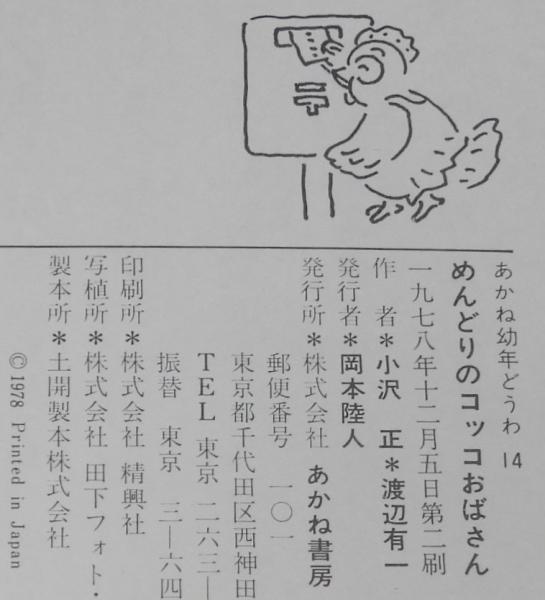 あかね幼年どうわ 14
めんどりのコッコおばさん
一九七八年十二月五日第二刷
作　者＊小沢　正＊渡辺有一
発行者＊岡本陸人
発行所＊株式会社　あかね書房
郵便番号　一〇一
東京都千代田区西神田
TEL 東京　二六三―
振替　東京　三―六四
印刷所＊株式会社　精興社
写植所＊株式会社　田下フォト・
製本所＊土開製本株式会社
©1978 Printed in Japan
〒